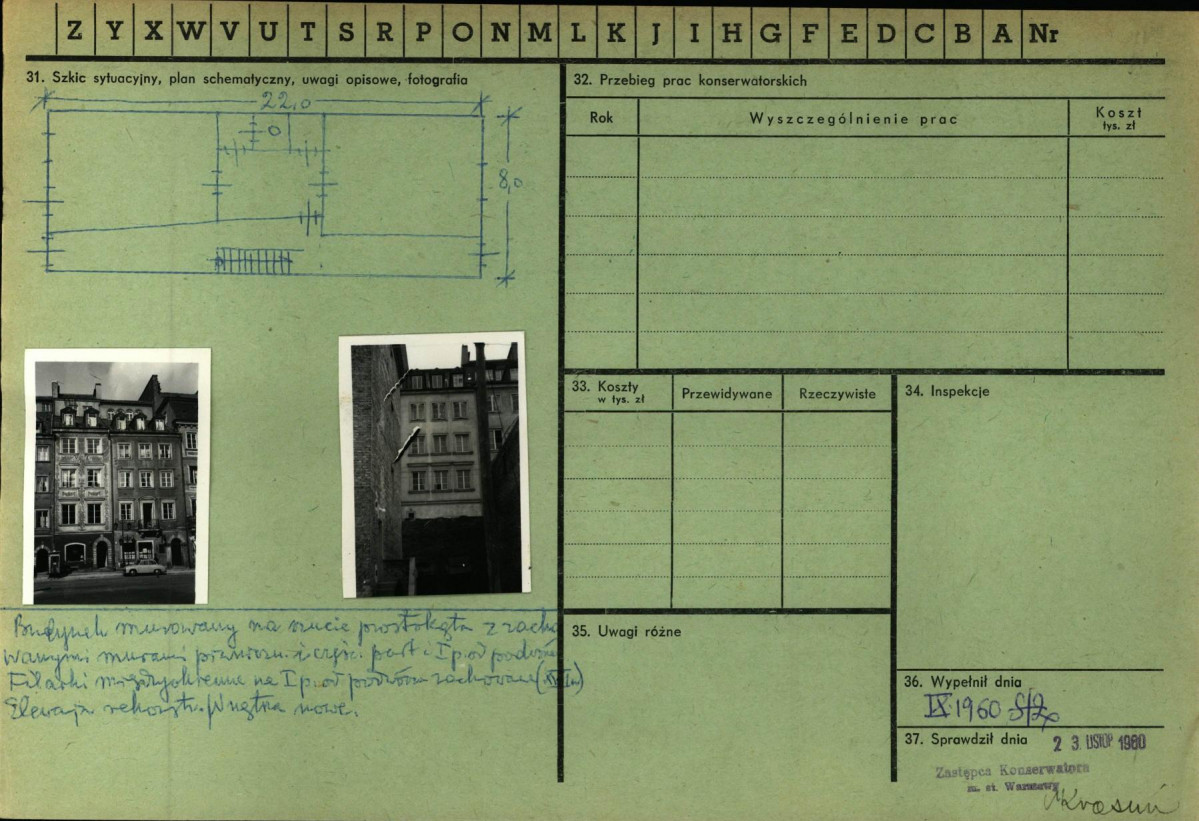 Z Y X W V U T S R P O N M L K J I H G F E D C B A Nr
31. Szkic sytuacyjny, plan schematyczny, uwagi opisowe, fotografia
22,0
8,0
Budynek murowany na rzucie prostokąta z zacho
wanymi murami przyziem. i częśc. part. i I p. od podwórza
Filarki międzyokienne na I p. od podwórza zachowane (XVI w)
Elewacja rekonstr. Wnętrza nowe.
32. Przebieg prac konserwatorskich
Rok
Wyszczególnienie prac
Koszt
tys. zł
33. Koszty
w tys. zł
Przewidywane
Rzeczywiste
34. Inspekcje
35. Uwagi różne
36. Wypełnił dnia
IX 1960
37. Sprawdził dnia
2 3. LISTOP 1960
Zastępca Konserwatora
m. st. Warszawy